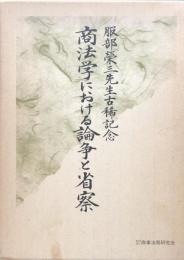 服部榮三先生古稀記念
商法学における論争と省察
商事法務研究会